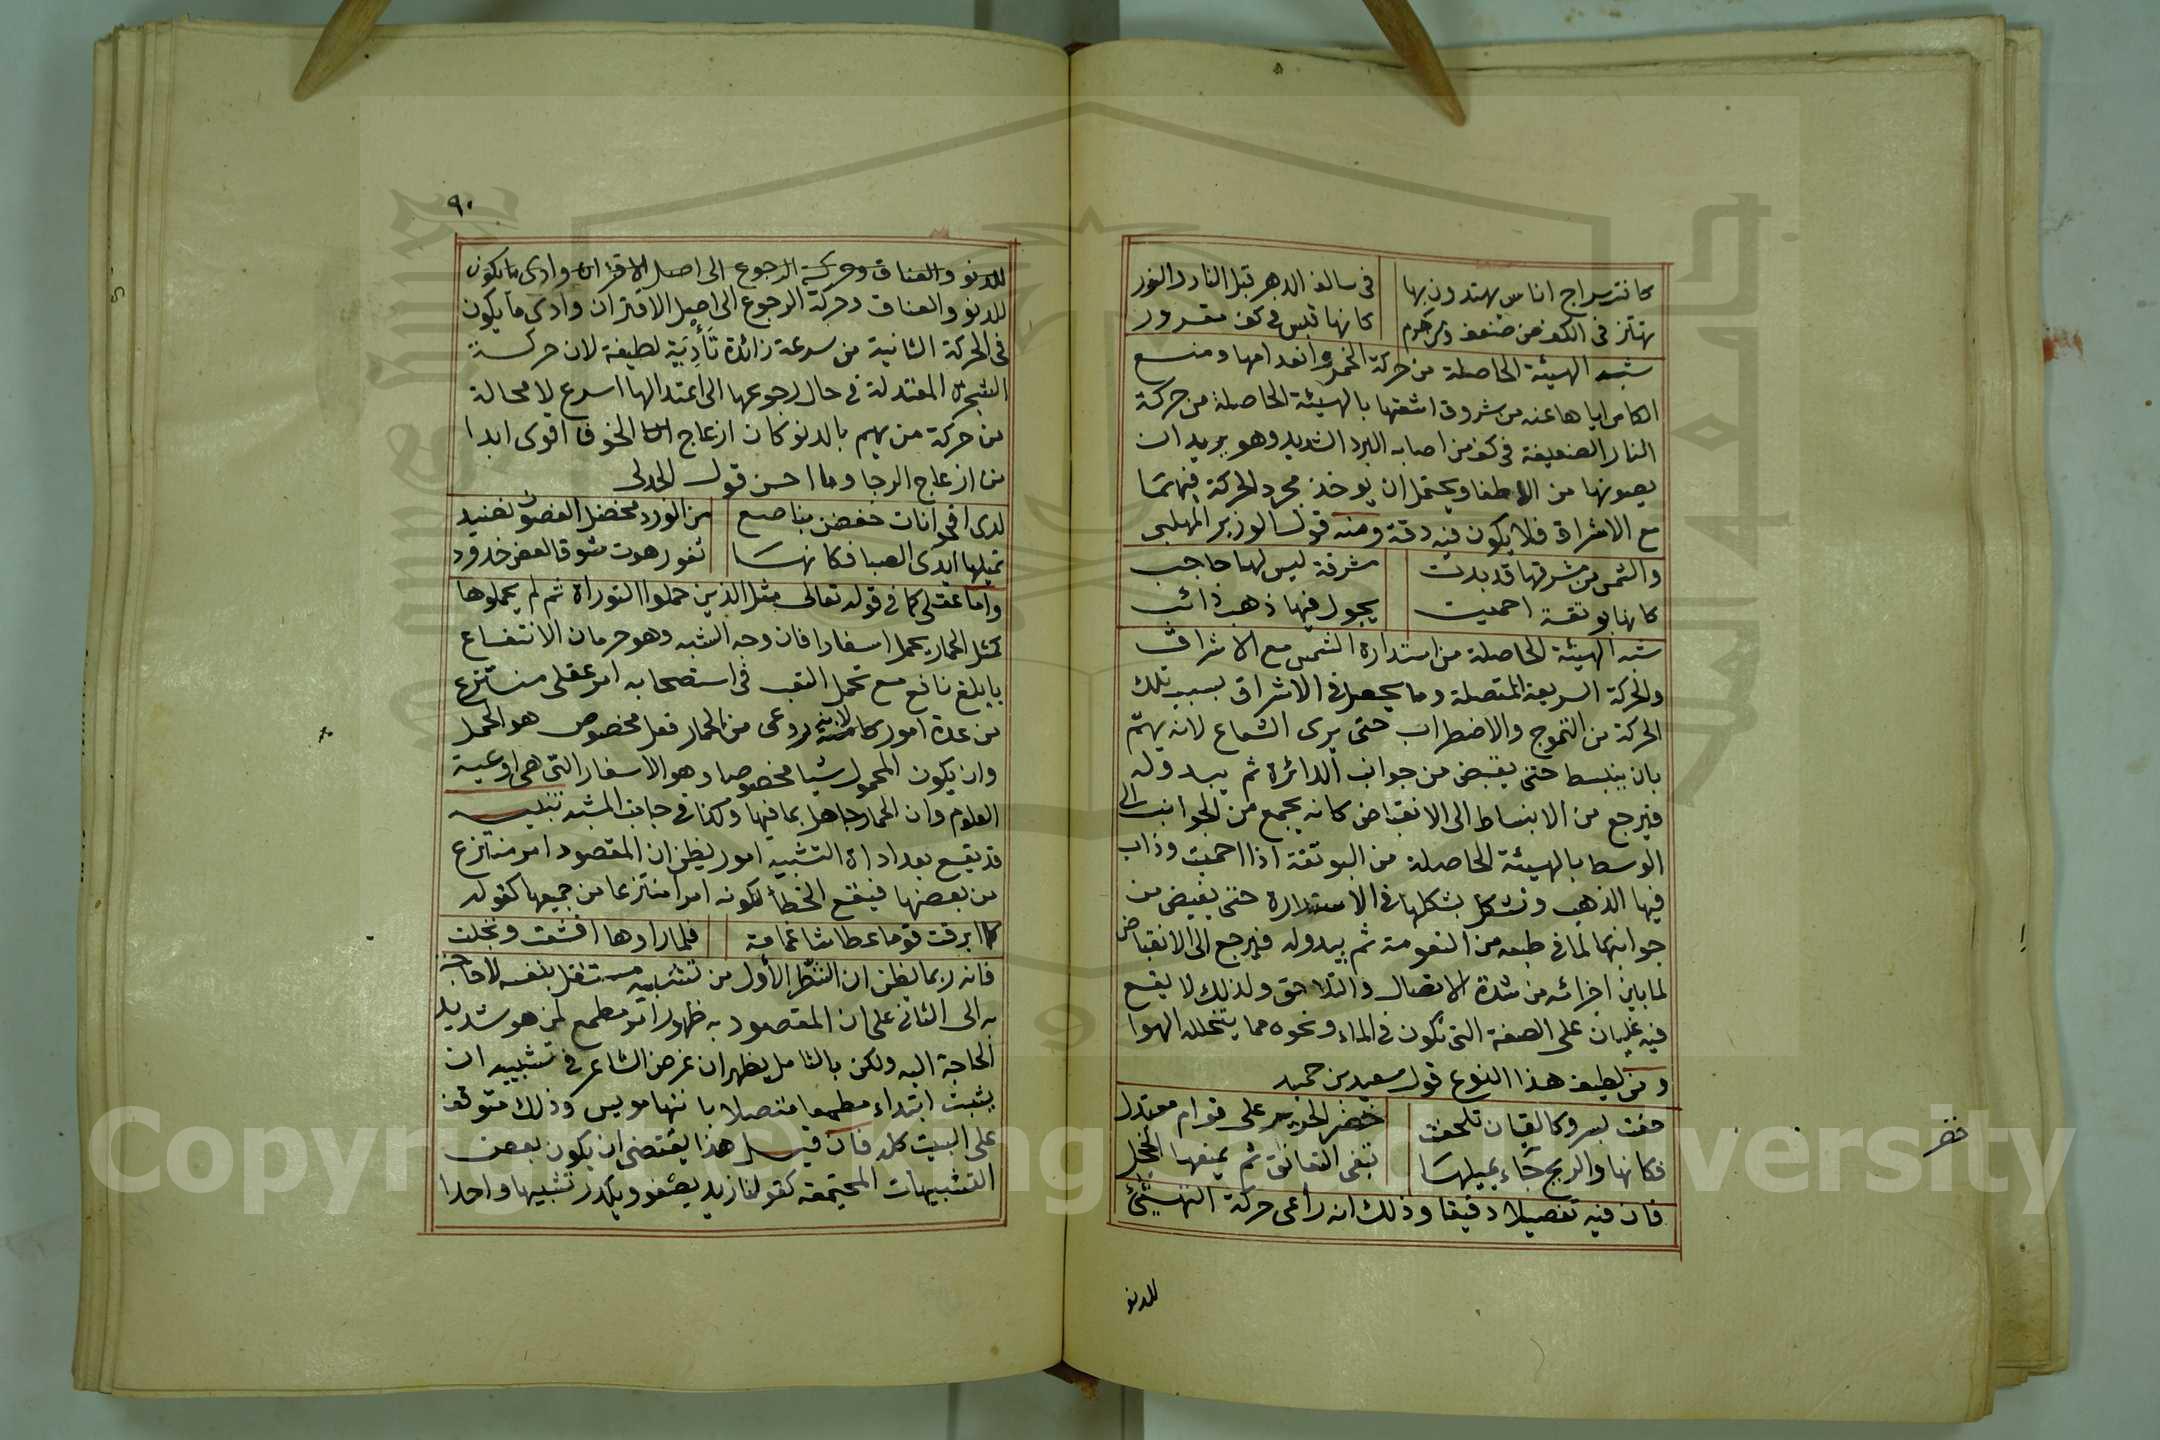 كانت سراج اناس يهتدون بها في سالف الدهر قبل النار والنور
تهتز في الكف من ضعف ومن هرم كانها قبس في كف مقرور
شبه الهيئة الحاصلة من حركة الخمرة وانعدامها ومنع
الكاس اياها عنه من شروق اشعتها بالهيئة الحاصلة من حركة
النار الضعيفة في كف من اصابه البرد الشديد وهو يريد ان
يصونها من الاطفا ويحتمل ان يوخذ مجرد الحركة فيهما
مع الاشراق فلا يكون فيه دقة ومنه قول الوزير المهلبي
والشمس من مشرقها قد بدت مشرقة ليس لها حاجب
كانها بوتقة احميت يجول فيها ذهب ذائب
شبه الهيئة الحاصلة من استدارة الشمس مع الاشراق
والحركة السريعة المتصلة وما يحصل في الاشراق بسبب تلك
الحركة من التموج والاضطراب حتى يرى الشعاع لانه يهمّ
بان ينبسط حتى يفيض من جوانب الدائرة ثم يبدوله
فيرجع من الانبساط الى الانقباض كانه يجمع من الجوانب الى
الوسط بالهيئة الحاصلة من البوتقة اذا احميت وذاب
فيها الذهب وتشكل بشكلها في الاستدارة حتى يفيض من
جوانبها لما في طبعه من النعومة ثم يبدوله فيرجع الى الانقباض
لما بين اجزائه من شدة الاتصال والتلاحق ولذلك لا يقع
فيه غليان على الصفة التي تكون في الماء ونحوه مما يتخلله الهوا
ومن لطيف هذا النوع قول سعيد بن حميد
حفت بسرو كالقيان تلحفت خضر الحرير على قوام معتدل
خضر
فكانها والريح جاء يميلها تبغي التعانق ثم يمنعها الخجل
فان فيه تفصيلا دقيقا وذلك انه راعى حركة التهيّئ
للدنو
٩٠
للدنو والعناق وحركة الرجوع الى اصل الاقتران وادى ما يكون
للدنو والعناق وحركة الرجوع الى اصل الافتران وادى ما يكون
في الحركة الثانية من سرعة زائدة تأدية لطيفة لان حركة
الشجرة المعتدلة في حال رجوعها الى اعتدالها اسرع لا محالة
من حركة من يهم بالدنو كان ازعاج الخوف اقوى ابدا
من ازعاج الرجا وما احسن قول الخدلى
لدى اقحوانات حففن بناصع من الورد مخضل الغصون نضيد
تميلها ايدى الصبا فكانها ثغور هوت شوقا لعض خدود
واما عقلي كما في قوله تعالى مثل الذين حملوا التوراة ثم لم يحملوها
كمثل الحمار يحمل اسفارا فان وجه الشبه وهو حرمان الانتفاع
بابلغ نافع مع تحمل التعب في استصحابه امر عقلي منتزع
من عدة امور لانه روعى من الحمار فعل مخصوص هو الحمل
وان يكون المحمول شيا مخصوصا وهو الاسفار التي هي اوعية
العلوم وان الحمار جاهل بما فيها وكذا في جانب المشبه تنبيه
قد يقع بعد اداة التشبيه امور يظن ان المقصود امر منتزع
من بعضها فيقع الخطأ لكونه امرا منتزعا من جميعها كقوله
كما ابرقت قوما عطاشا غمامة فلما راوها اقشعت وتجلت
فانه ربما يظن ان الشطر الأول من تشبيه مستقل بنفسه لا حاجة
به الى الثاني على ان المقصود به ظهور امر مطمع لمن هو شديد
الحاجة اليه ولكن بالتامل يظهر ان غرض الشاعر في تشبيهه ان
يثبت ابتداء مطمعا متصلا بانتها مويس وذلك متوقف
على البيت كله فان قيل هذا يقتضى ان يكون بعض
التشبيهات المجتمعة كقولنا زيد يصفو ويكدر تشبيها واحدا
Copyright © King Saud University